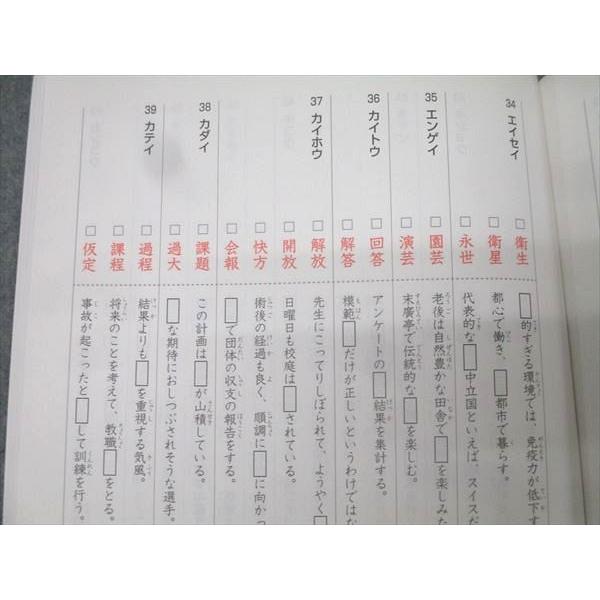 34 エイセイ
□ 衛生 □的すぎる環境では、免疫力が低下す
□ 衛星 都心で働き、□都市で暮らす。
□ 永世 代表的な□中立国といえば、スイスだ
35 エンゲイ
□ 園芸 老後は自然豊かな田舎で□を楽しみた
□ 演芸 末廣亭で伝統的な□を楽しむ。
36 カイトウ
□ 回答 アンケートの□結果を集計する。
□ 解答 模範□だけが正しいというわけではな
37 カイホウ
□ 解放 先生にこってりしぼられて、ようやく□
□ 開放 日曜日も校庭は□されている。
□ 快方 術後の経過も良く、順調に□に向かっ
□ 会報 □で団体の収支の報告をする。
38 カダイ
□ 課題 この計画は□が山積している。
□ 過大 □な期待におしつぶされそうな選手。
39 カテイ
□ 過程 結果よりも□を重視する気風。
□ 課程 将来のことを考えて、教職□をとる。
□ 仮定 事故が起こったと□して訓練を行う。